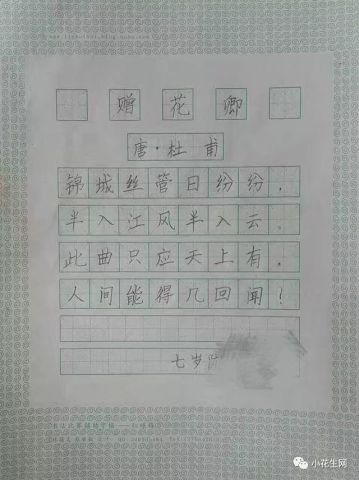 赠花卿
唐·杜甫
锦城丝管日纷纷，
半入江风半入云。
此曲只应天上有，
人间能得几回闻！
七岁
小花生网